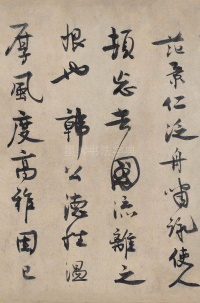 范景仁泛舟嘯詠使人
頓忘去國流離之
恨也韓公德性溫
厚風度高雅固已